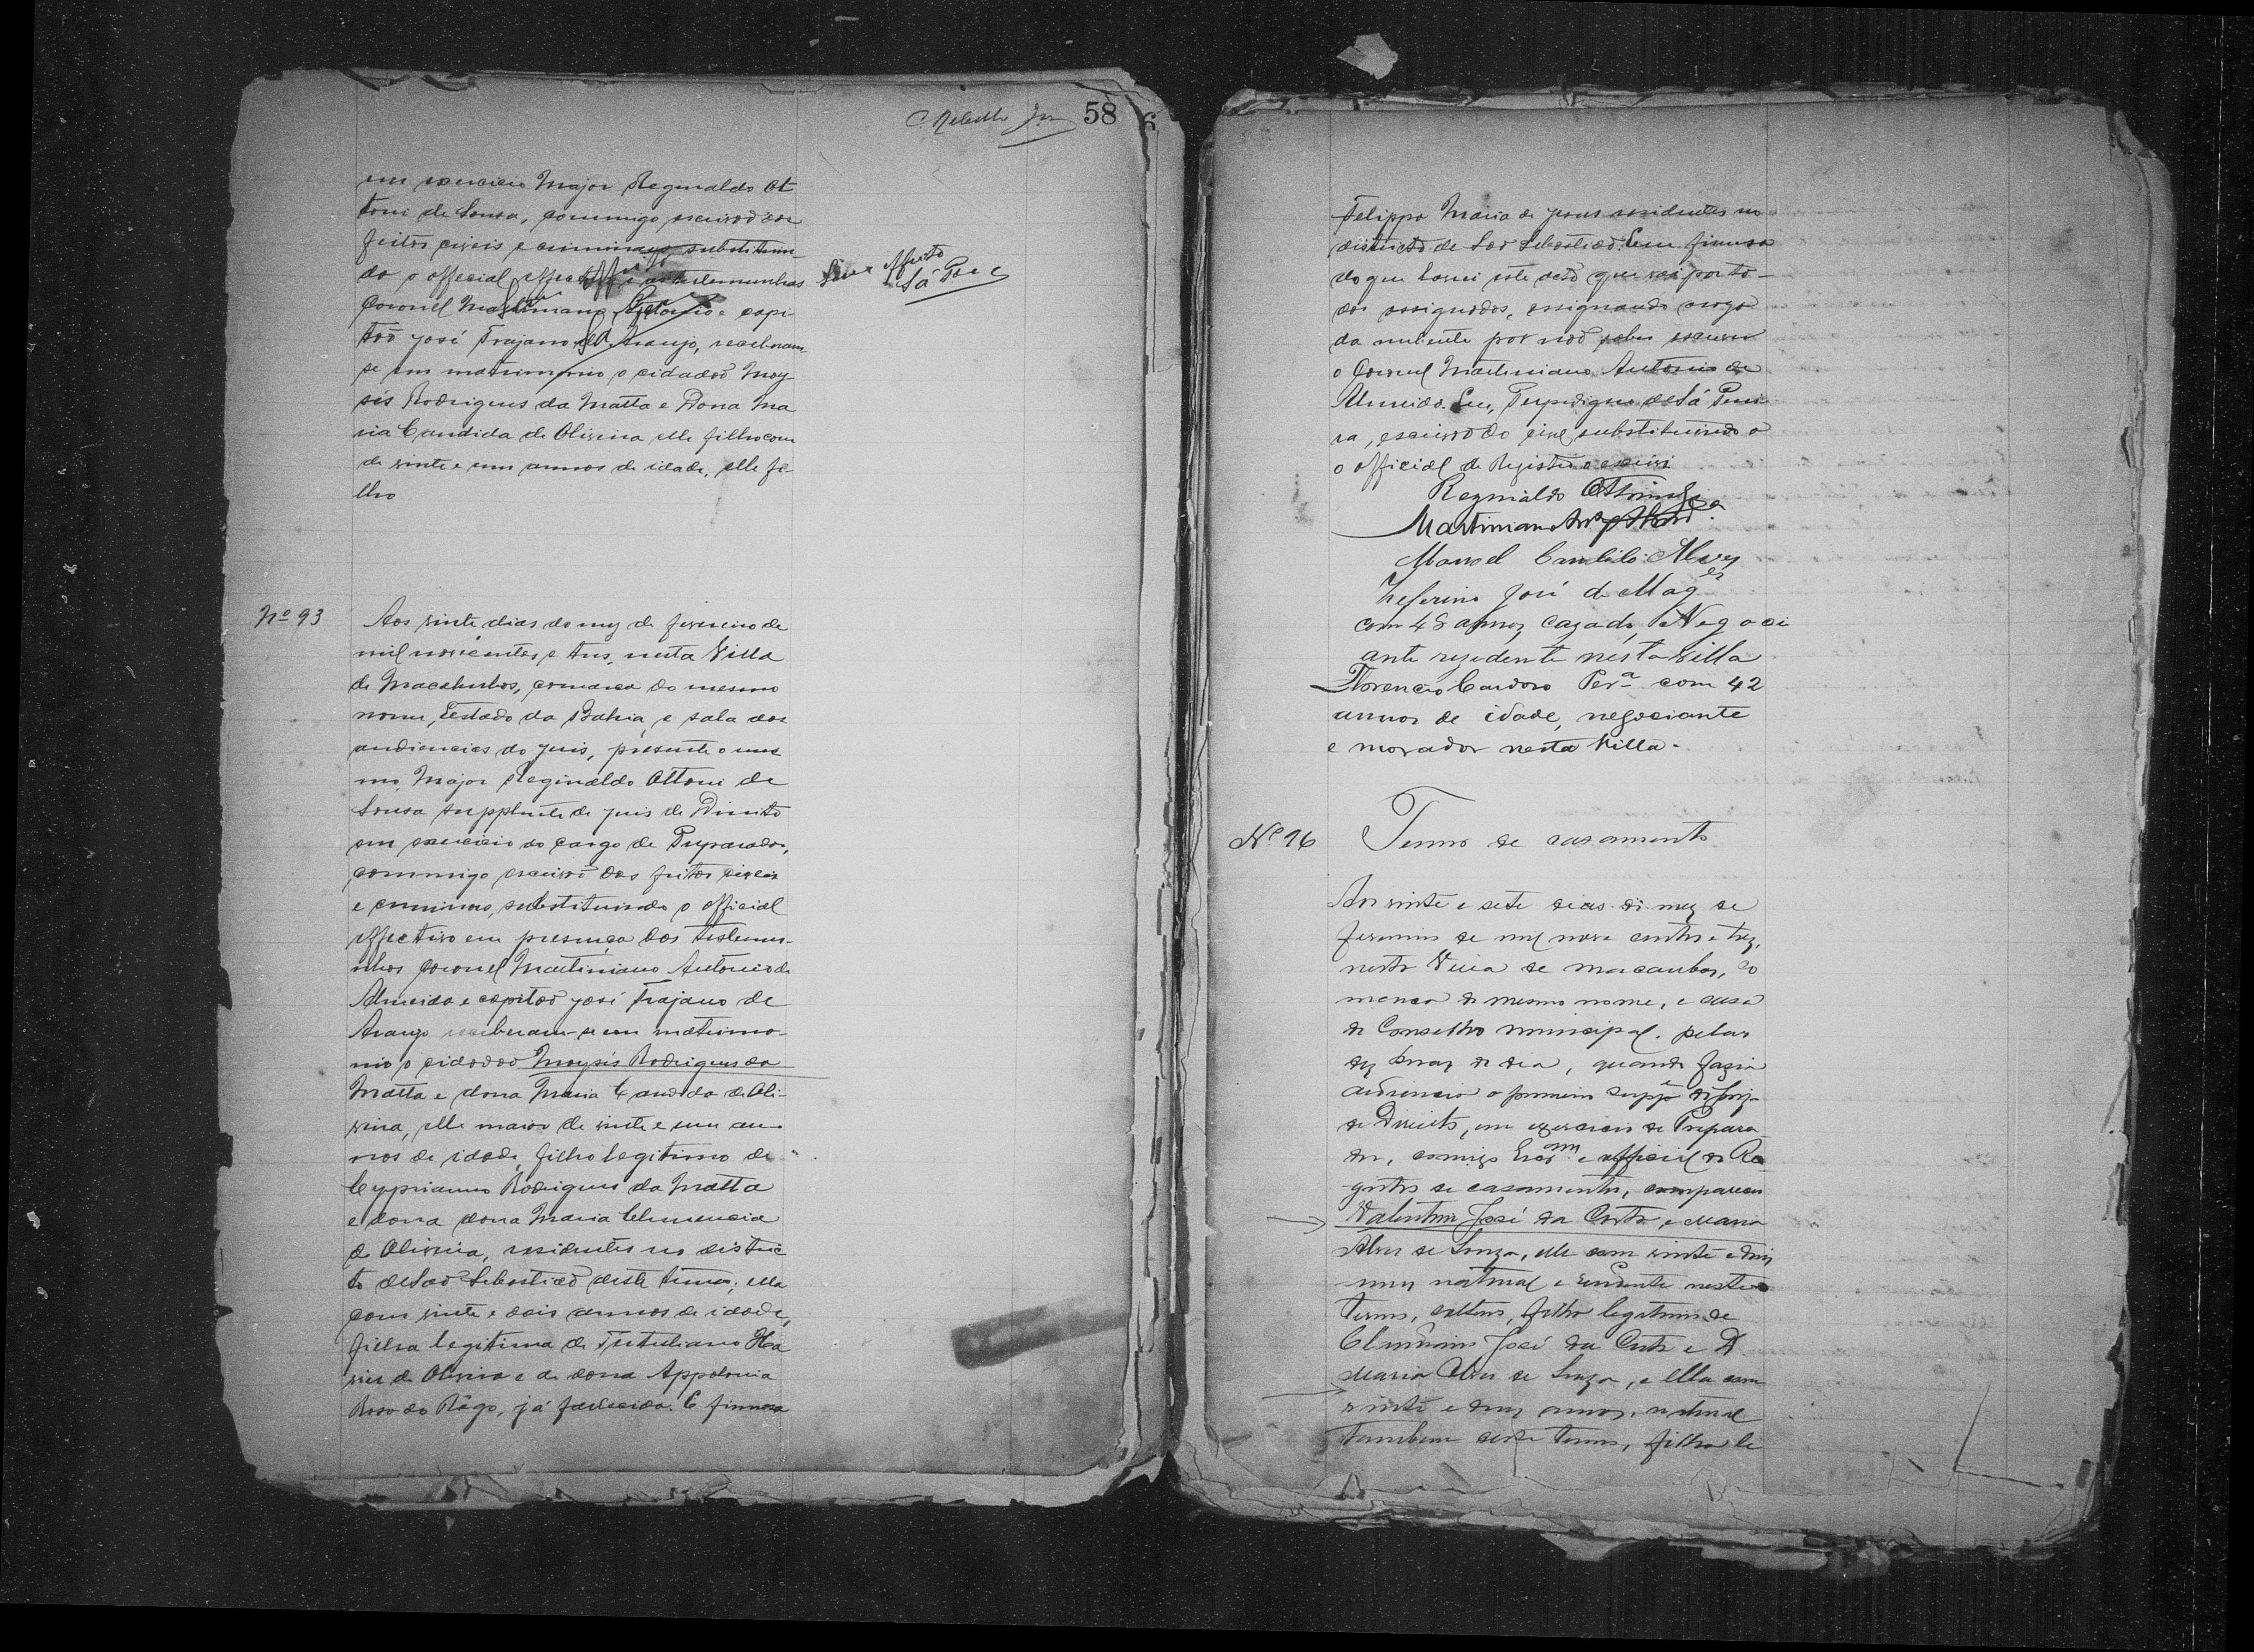 58
em exercicio Major Reginaldo Ot
toni de Sousa, commigo escrivão dos
feitos civeis e crimináes substituin-
do o official effectivo e as testemunhas
Sem effeito
Coronel Martiniano Antonio e capi
Sá Per.ª
tão José Trajano de Araujo, receberam
se em matrimonio o cidadão Moy-
sés Rodrigues da Matta e Dona Ma
ria Candida de Oliveira elle filho com
de vinte e um annos de idade, elle fi-
lho
Nº 93
Aos vinte dias do mez de fevereiro de
mil novecentos e tres, nesta Villa
de Macahubas, comarca do mesmo
nome, Estado da Bahia, e sala das
audiencias do juis, presente o mes
mo, Major Reginaldo Ottoni de
Sousa supplente de juis de Direito
em exercicio do cargo de Preparador,
commigo escrivão dos feitos civeis
e crimines, substituindo o official
effectivo em presença das testemu-
nhas coronel Martiniano Antonio de
Almeida e capitão José Trajano de
Araujo receberam-se em matrimo-
nio o cidadão Moysés Rodrigues da
Matta e dona Maria Candida de Oli-
veira, elle maior de vinte e um an-
nos de idade, filho legitimo de
Cyprianno Rodrigues da Matta
e dona dona Maria Clemencia
de Oliveira, residentes no distric
to de São Sebastião deste termo; ella
com vinte e dois annos de idade,
filha legitima de Tertuliano
de Oliveira e de dona Appolonia
Rosa do Rêgo, já fallecida. E
Felippa Maria de Jesus residentes no
districto de São Sebastião. Em firmesa
do que lavrei este acto que vai por to-
dos assignados, assignando a rogo
da nubente por não saber escrever
o Coronel Martiniano Antonio de
Almeida. Eu, Perpedigno de Sá Perei
ra, escrivão do civel substituindo o
o official de Registro o escrevi
Reginaldo Ottoni Sz.ª
Martiniano Anto Almd.ª
Manoel Candido Alves
Zeferino José de Mag.es
com 48 annos, cazado, Negoci
ante rezedente nesta Villa
Florencio Cardoso Per.ª com 42
annos de idade, negociante
e morador nesta Villa.
Nº 96
Termo de casamento
Aos vinte e sete dias do mez de
fevereiro de mil nove centos e trez,
nesta Villa de Macaubas, co
marca do mesmo nome, e casa
do Conselho municipal, pelas
dez horas do dia, quando fazia
audiencia o primeiro supp.e do Juiz
de Direito, em exercicio de Prepara
dor, comigo e official do Re
gistro de casamentos, compareceu
Valentim José da Costa e Maria
Alves de Souza, elle com vinte e
natural e residente neste
termo, solteiro, filho legitimo de
José da Costa e D.
Maria Alves de Souza, e ella com
vinte e annos, natural
tambem deste termo, filha le